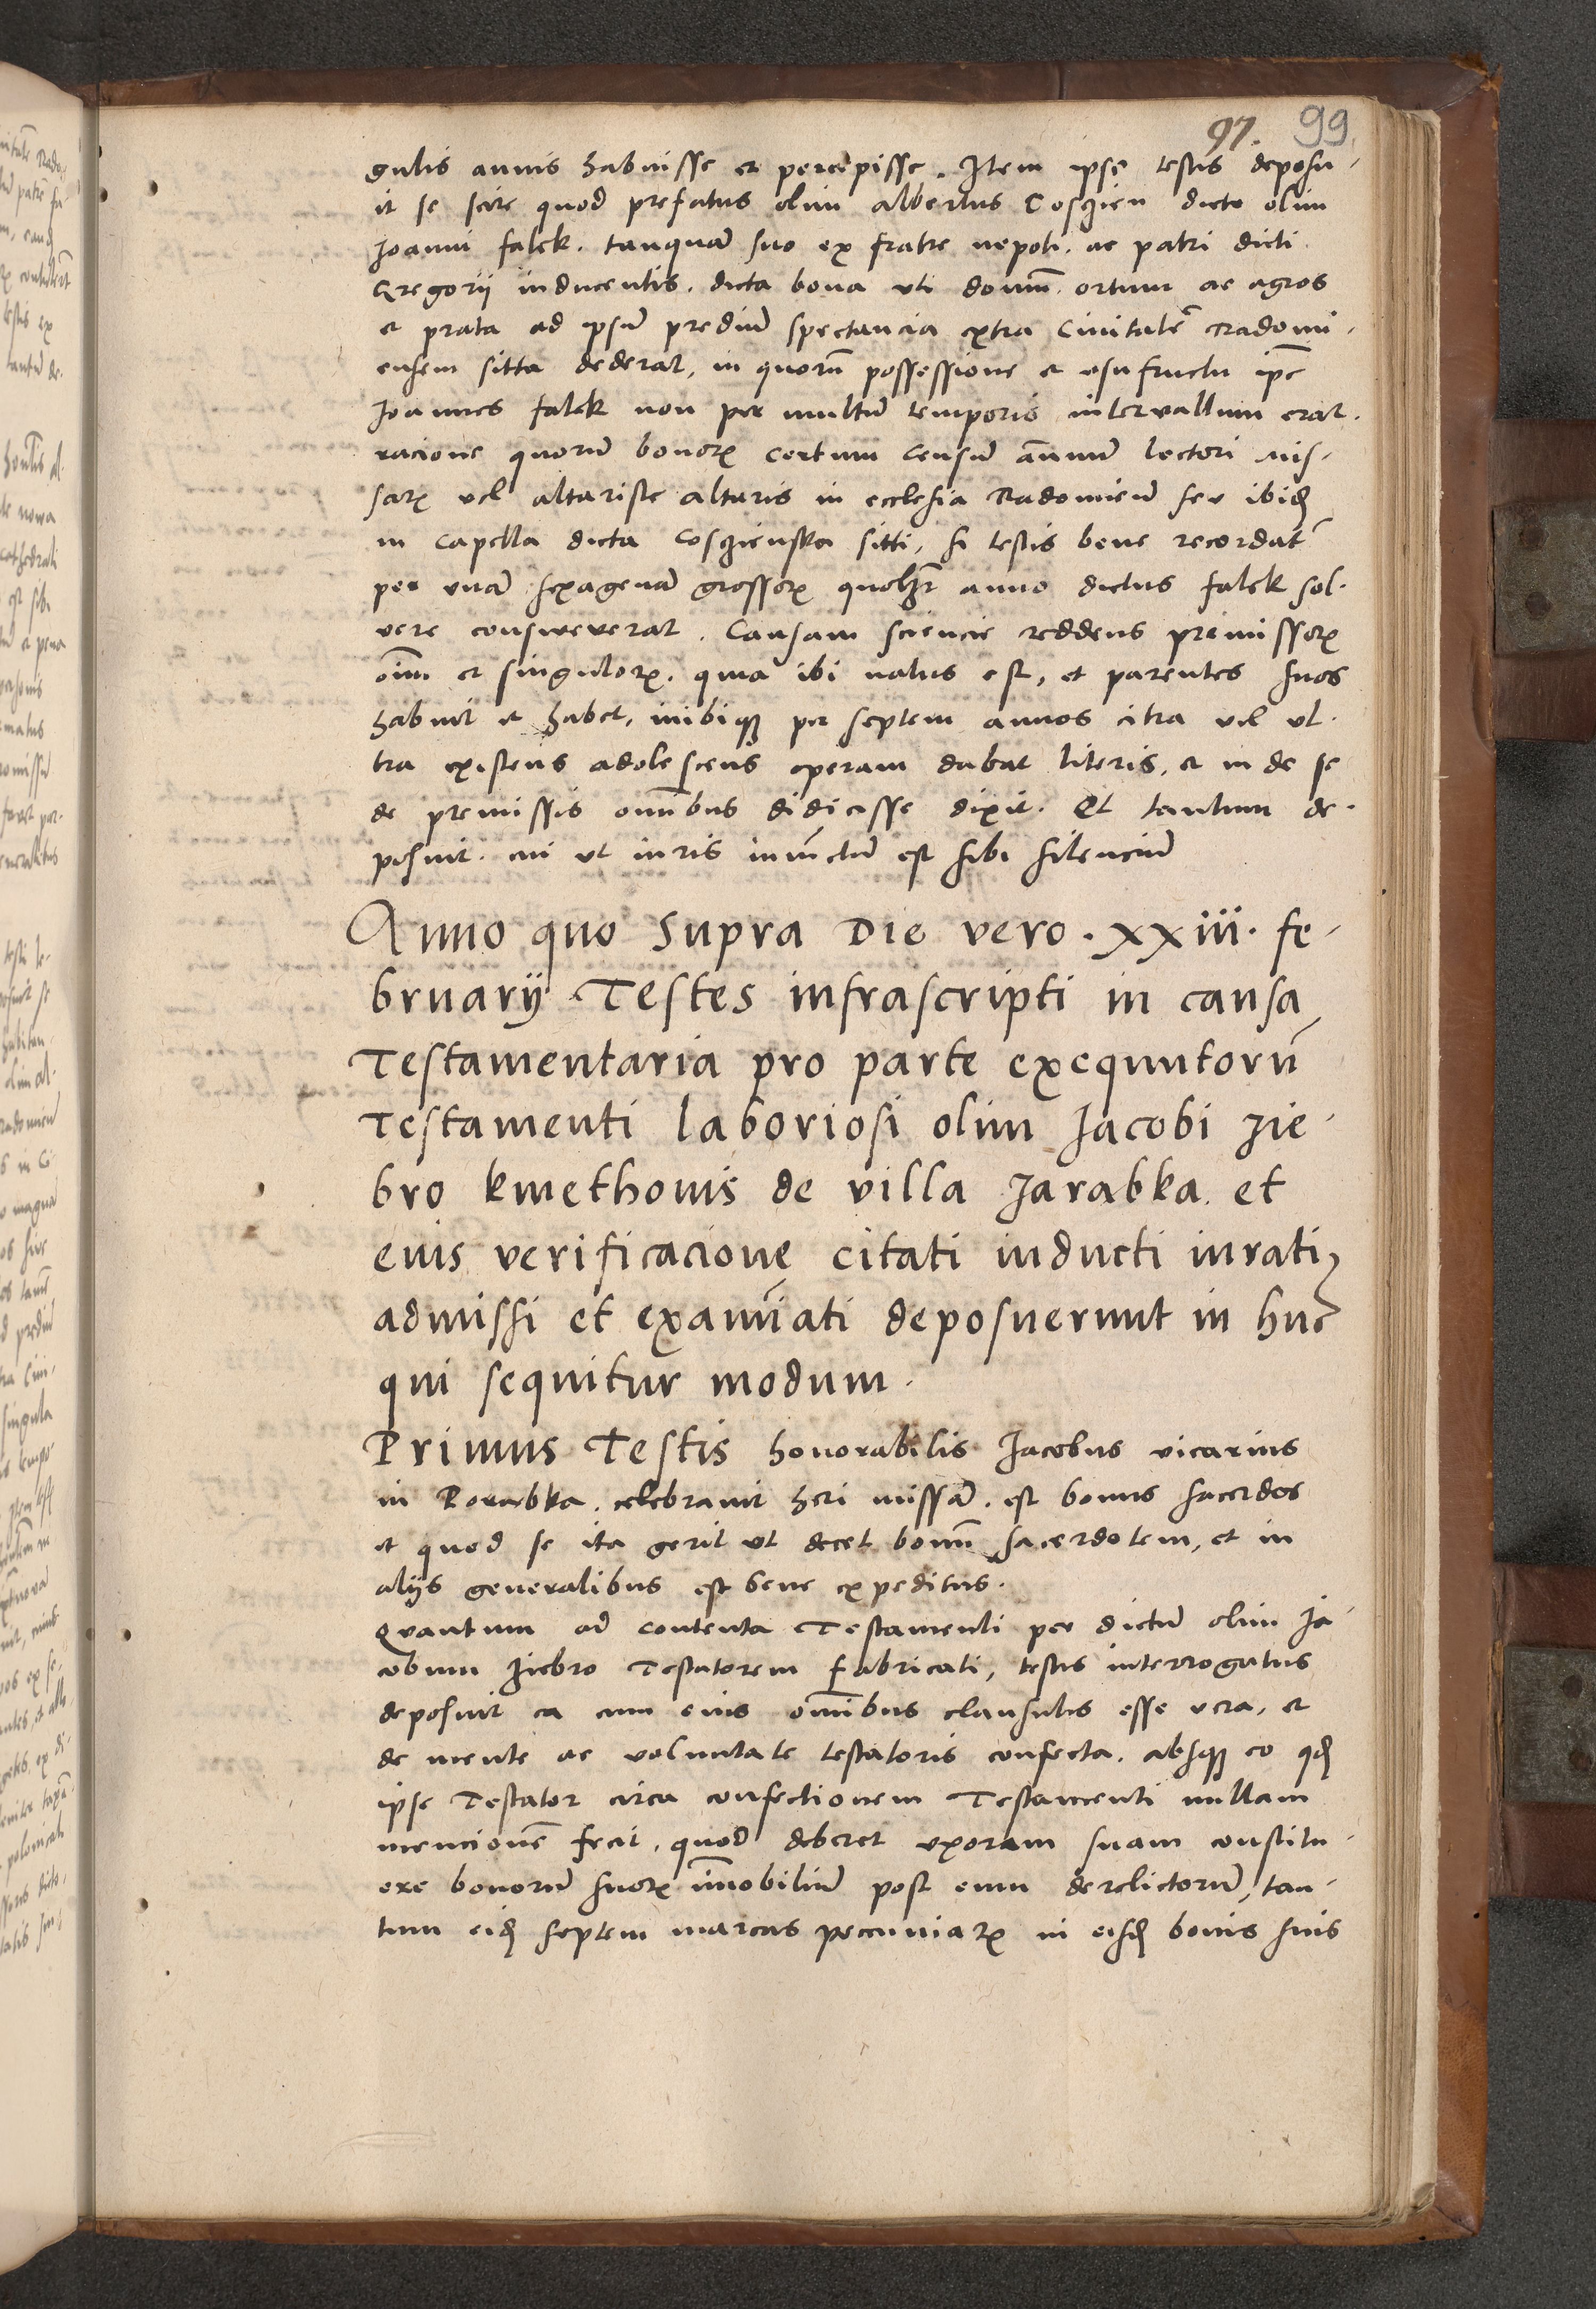 97. 99
gulis annis habuisse et percepisse. Item ipse testis deposu-
it se scire quod prefatus olim albertus Coszien dicto olim
Joanni falek. tanquā suo ex fratre nepoti. ac patri dicti
Gregorii inducentis. dicta bona uti domū. ortum ac agros
et prata ad ipsū prediū spectancia extra Civitatē Radomi-
ensem sitta dederat, in quorū possessione et usufructu ip̄e
Joannes falek non per multū temporis intervallum erat.
racione quorū bonoꝝ certum censū annuū lectori mis-
saꝝ vel altariste altaris in ecclesia Radomieñ seu ibid
in Capella dicta Coszienska sitti, si testis bene recordat̄
per unā sexagenā grossoꝝ quolz anno dictus falek sol-
vere consueverat. Causam sciencie reddens premissoꝝ
oīm et singuloꝝ. quia ibi natus est, et parentes suos
habuit et habet, inibiqꝫ per septem annos citra vel ul-
tra existens adolescens operam dabat literis, et in de se
de premissis omībus didicisse dixit. Et tantum de-
posuit. cui ut iuris iniūctū est sibi silenciū
Anno quo Supra Die vero . xxiii . fe-
bruarij Testes infrascripti in causa
Testamentaria pro parte execuutorū
Testamenti laboriosi olim Jacobi Zie-
bro kmethonis de villa Jarabka. et
eius verificacione citati inducti iurati
admissi et examīati deposuerunt in hūc
qui sequitur modum.
Primus Testis honorabilis Jacobus vicarius
in Porabka. celebravit heri missā. est bonus sacerdos
et quod se ita gerit ut decet bonū sacerdotem, et in
alijs generalibus est bene expeditus.
Quantum ad contenta Testamenti per dictū olim Ja-
cobum Ziebro Testatorem fabricati, testis interrogatus
deposuit ea cum eius omībus clausulis esse vera, et
de mente ac voluntate testatoris confecta. absqꝫ eo qd
ipse Testator circa confectionem Testamenti nullam
mencionē fecit. quod deberet uxoram suam constitu-
ere bonorū suoꝝ īmobiliū post eum derelictorū, tan-
tum eid septem marcas pecuniaꝝ in eisd bonis suis